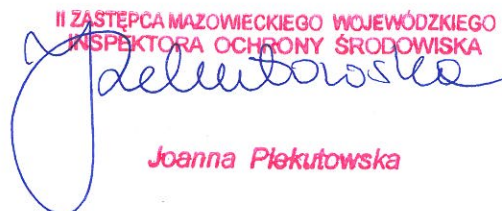 II ZASTĘPCA MAZOWIECKIEGO WOJEWÓDZKIEGO
INSPEKTORA OCHRONY ŚRODOWISKA
Joanna Piekutowska